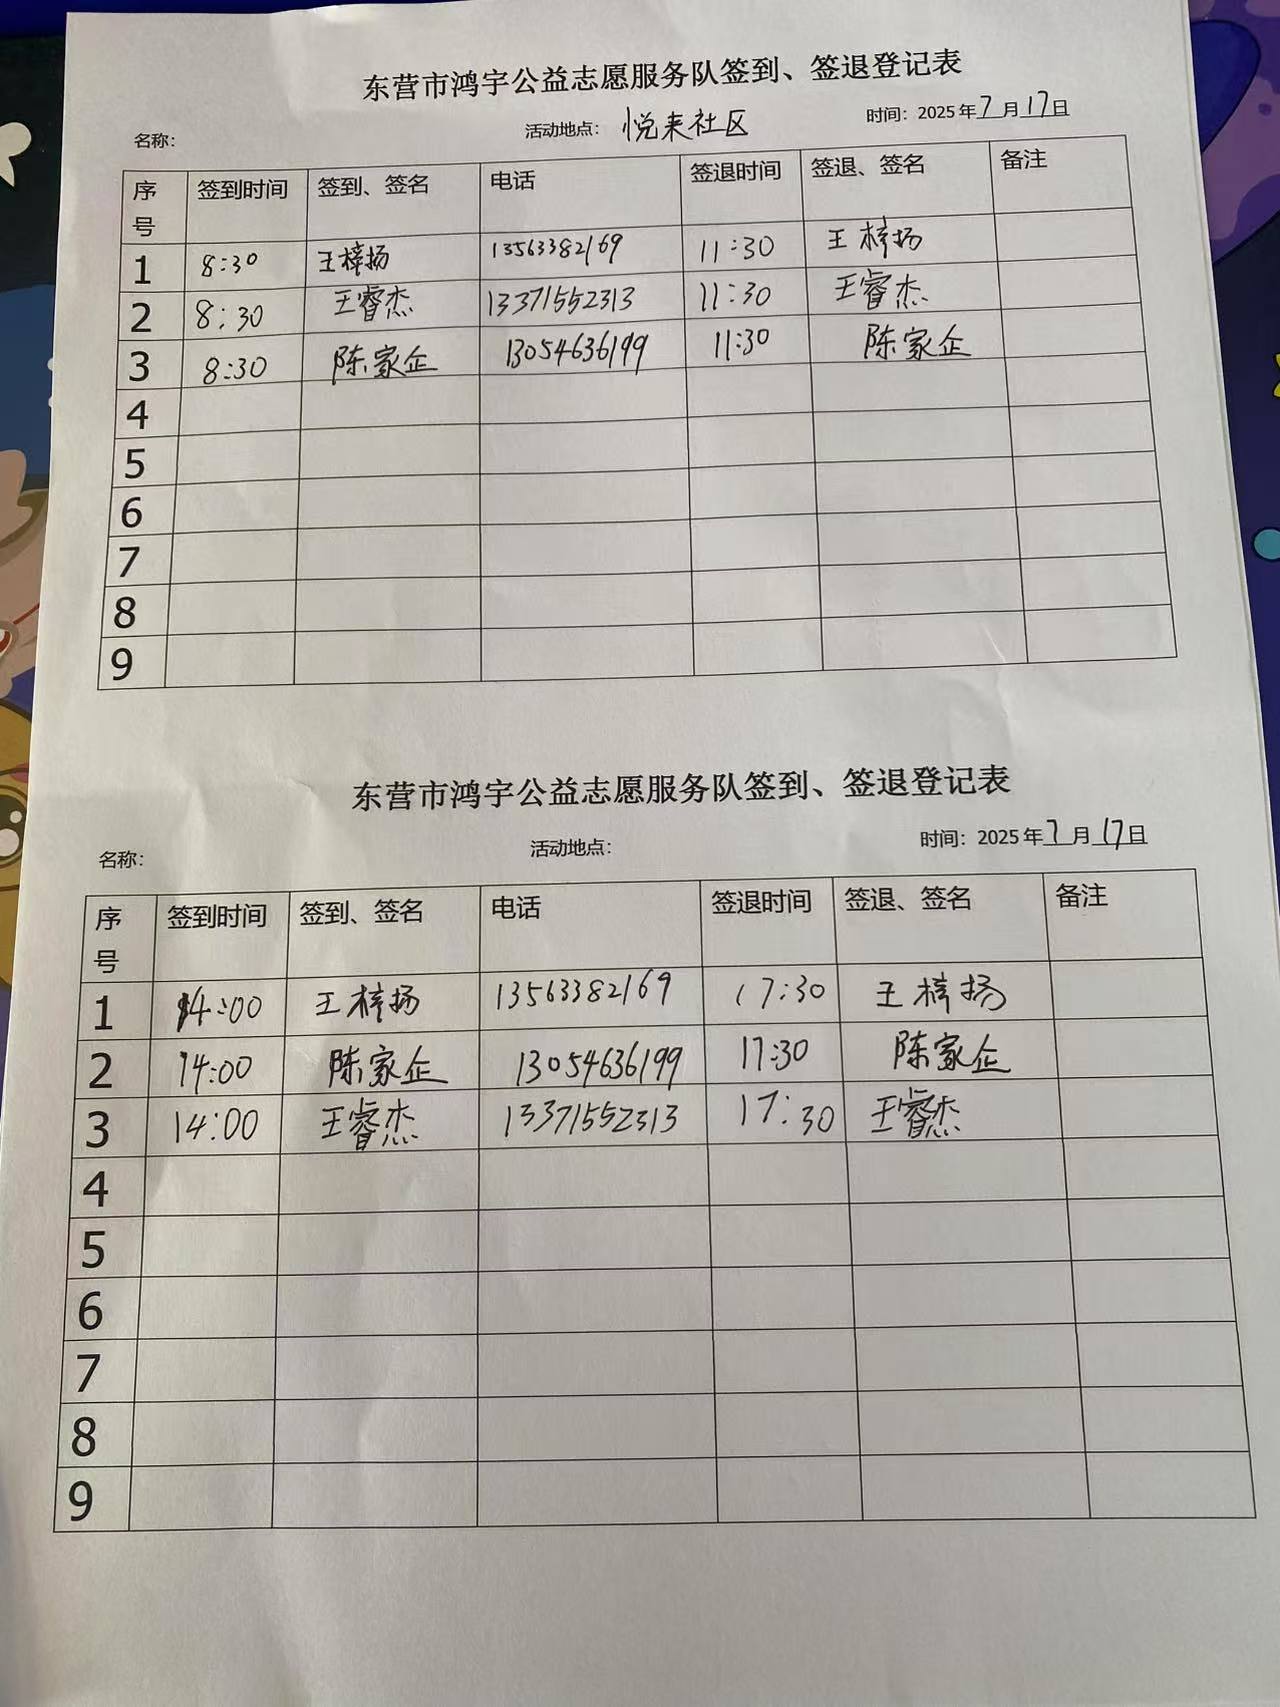 东营市鸿宇公益志愿服务队签到、签退登记表
名称: 活动地点: 悦来社区 时间: 2025年7月17日
序号 签到时间 签到、签名 电话 签退时间 签退、签名 备注
1 8:30 王梓扬 13563382169 11:30 王梓扬
2 8:30 王睿杰 13371552313 11:30 王睿杰
3 8:30 陈家企 13054636199 11:30 陈家企
4
5
6
7
8
9
东营市鸿宇公益志愿服务队签到、签退登记表
名称: 活动地点: 时间: 2025年7月17日
序号 签到时间 签到、签名 电话 签退时间 签退、签名 备注
1 14:00 王梓扬 13563382169 17:30 王梓扬
2 14:00 陈家企 13054636199 17:30 陈家企
3 14:00 王睿杰 13371552313 17:30 王睿杰
4
5
6
7
8
9